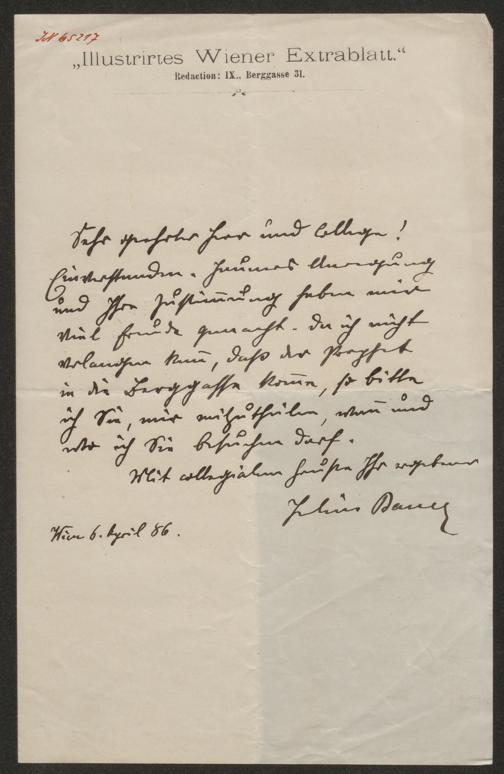 JN 65217
„Illustrirtes Wiener Extrablatt.“
Redaction: IX., Berggasse 31.
Sehr geehrter Herr und College!
Einverstanden. Jauners Anregung
und Ihre Zustimmung haben mir
viel Freude gemacht. Da ich nicht
verlangen kann, daß der Prophet
in die Berggasse komme, so bitte
ich Sie, mir mitzutheilen, wann und
wo ich Sie besuchen darf.
Mit collegialem Gruße Ihr ergebener
Julius Bauer
Wien 6. April 86.